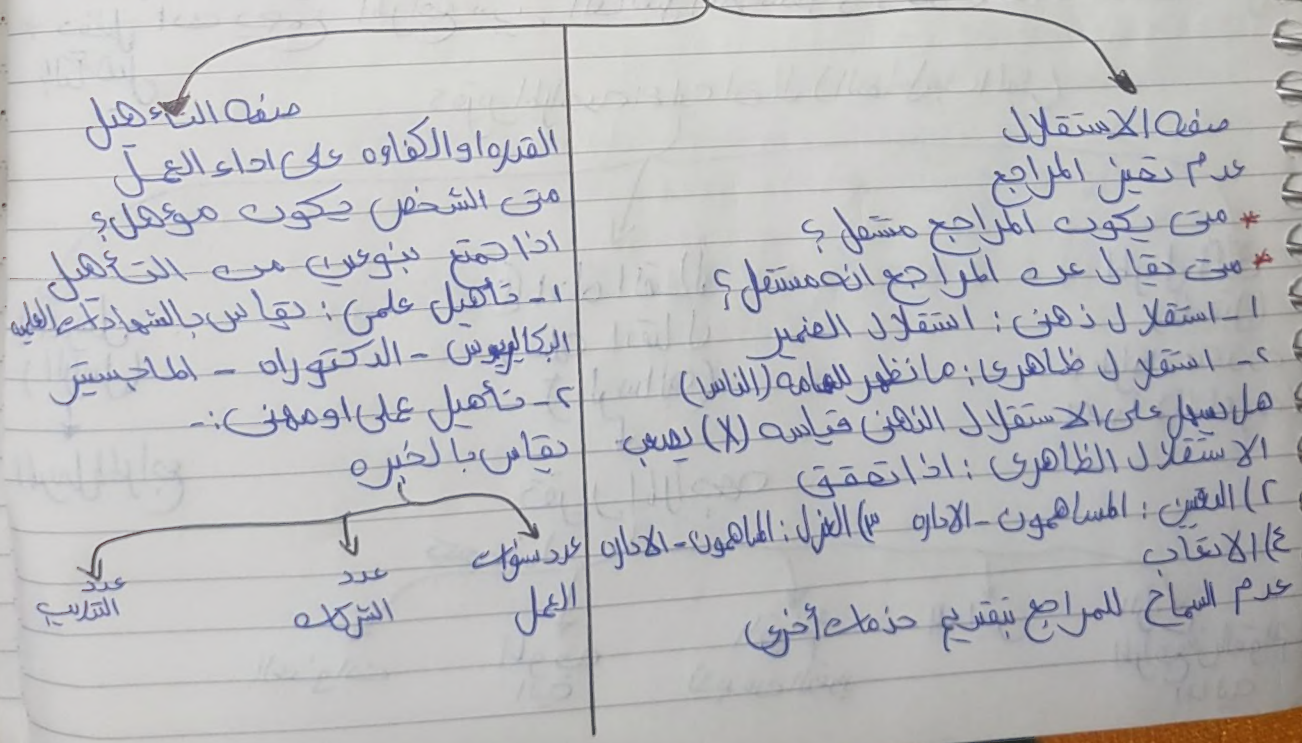 صفه الاستقلال
عدم تحيز المراجع
* متى يكون المراجع مستقل؟
* متى يقال عن المراجع انه مستقل؟
١- استقلال ذهنى: استقلال الضمير
٢- استقلال ظاهرى: ما نظهر للعامه (الناس)
هل يسهل على الاستقلال الذهنى قياسه (X) يصعب
الاستقلال الظاهرى: اذا تحقق
٢) التعين: المساهمون - الاداره ٣) العزل: المساهمون - الاداره
٤) الاتعاب
عدم السماح للمراجع بتقديم خدمات أخرى
صفه التأهيل
القدره او الكفاوه على اداء العمل
متى الشخص يكون مؤهل؟
اذا تمتع بنوعين من التأهيل
١- تأهيل علمى: يقاس بالشهادات العلميه
البكاليريوس - الدكتوراه - الماجستير
٢- تأهيل على او مهنى:-
يقاس بالخبره
عدد سنوات العمل
عدد الشركات
عدد التدريب